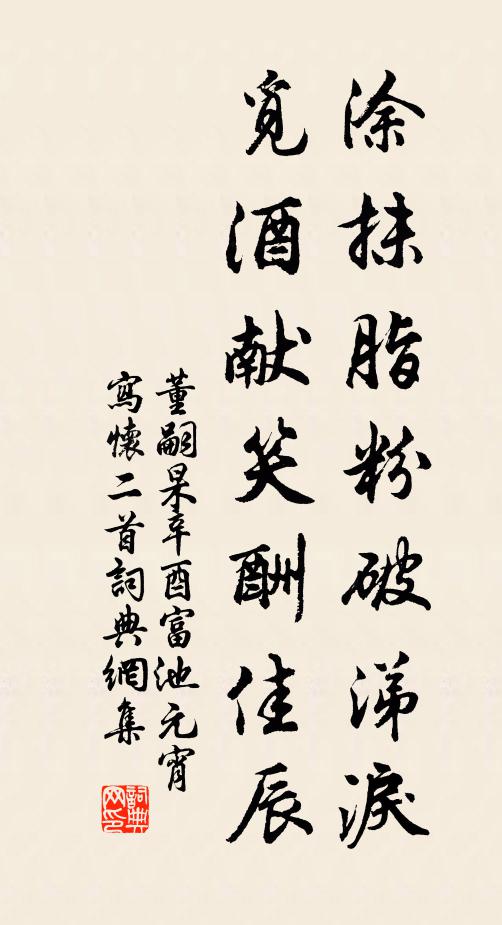 涂抹脂粉破涕淚
覓酒献笑酬佳辰
董嗣杲辛酉富池元宵
寫懷二首詞典網集
詞典
网印